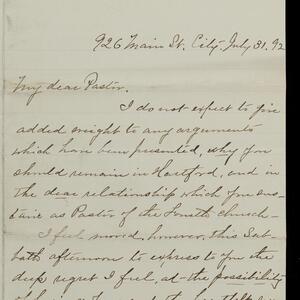 926 Main St. City. July 31. 92
My dear Pastor.
I do not expect to give
added weight to any arguments
which have been presented, why you
should remain in Hartford, and in
the dear relationship which you sus-
tain as Pastor of the Fourth church—
I feel moved, however, this Sab-
bath afternoon to express to you the
deep regret I feel, at the possibility
of